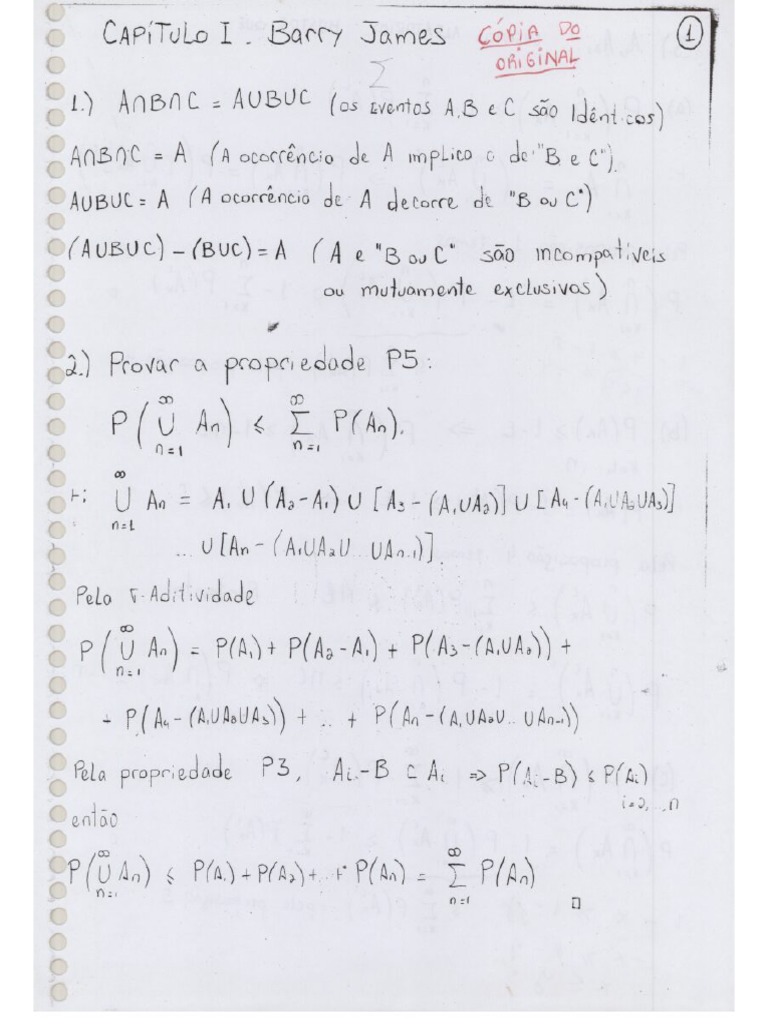 CAPÍTULO I. Barry James CÓPIA DO ORIGINAL ①
Σ
1.) A∩B∩C = A∪B∪C (os Eventos A, B e C são Idênticos)
A∩B∩C = A (A ocorrência de A implica a de "B e C").
A∪B∪C = A (A ocorrência de A decorre de "B ou C")
(A∪B∪C) – (B∪C) = A (A e "B ou C" são incompatíveis
ou mutuamente exclusivos)
2.) Provar a propriedade P5:
P(∪_{n=1}^{∞} An) ≤ Σ_{n=1}^{∞} P(An).
∪_{n=1}^{∞} An = A₁ ∪ (A₂–A₁) ∪ [A₃–(A₁∪A₂)] ∪ [A₄–(A₁∪A₂∪A₃)]
... ∪ [An – (A₁∪A₂∪...∪An-1)].
Pela σ-Aditividade
P(∪_{n=1}^{∞} An) = P(A₁) + P(A₂–A₁) + P(A₃–(A₁∪A₂)) +
+ P(A₄–(A₁∪A₂∪A₃)) + ... + P(An–(A₁∪A₂∪...∪An-1))
Pela propriedade P3, Ai–B ⊂ Ai ⇒ P(Ai–B) ≤ P(Ai)
i=2,...,n
então
P(∪_{n=1}^{∞} An) ≤ P(A₁) + P(A₂) + ... + P(An) = Σ_{n=1}^{∞} P(An)
□